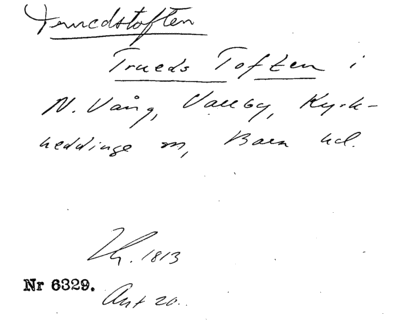 Truedstoften
Trueds Toften i
N. Vång, Valby, Kyrk-
heddinge sn, Bara hd.
1813
Nr 6329.
Akt 20.